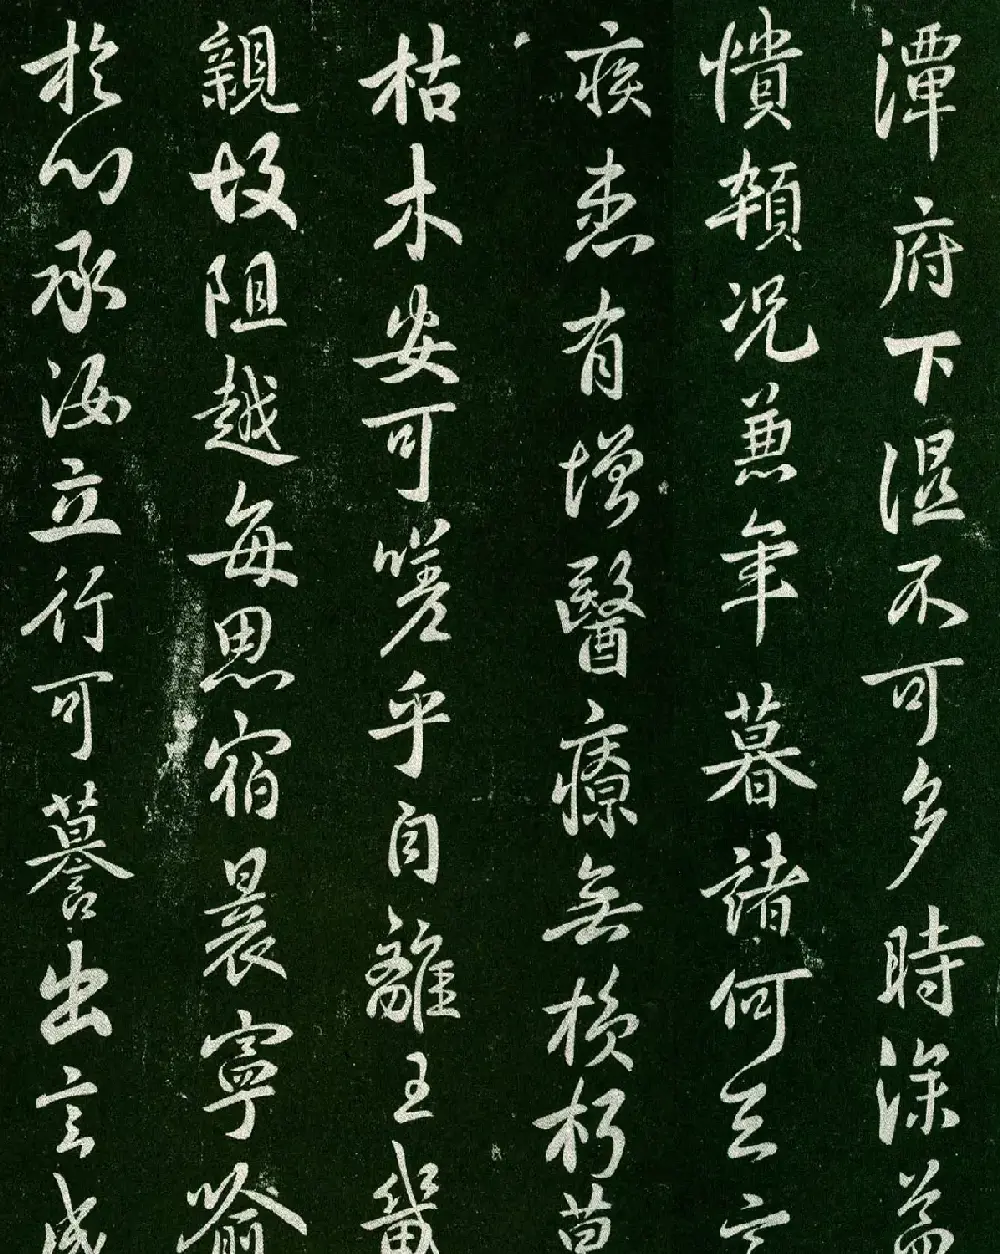 潭府下濕不可多時深
憒頓況兼年暮諸何足言
疾患有增醫療無損朽草
枯木安可嗟乎自離王畿
親故阻越每思宿晨寧喻
於心承汝立行可謩出言成